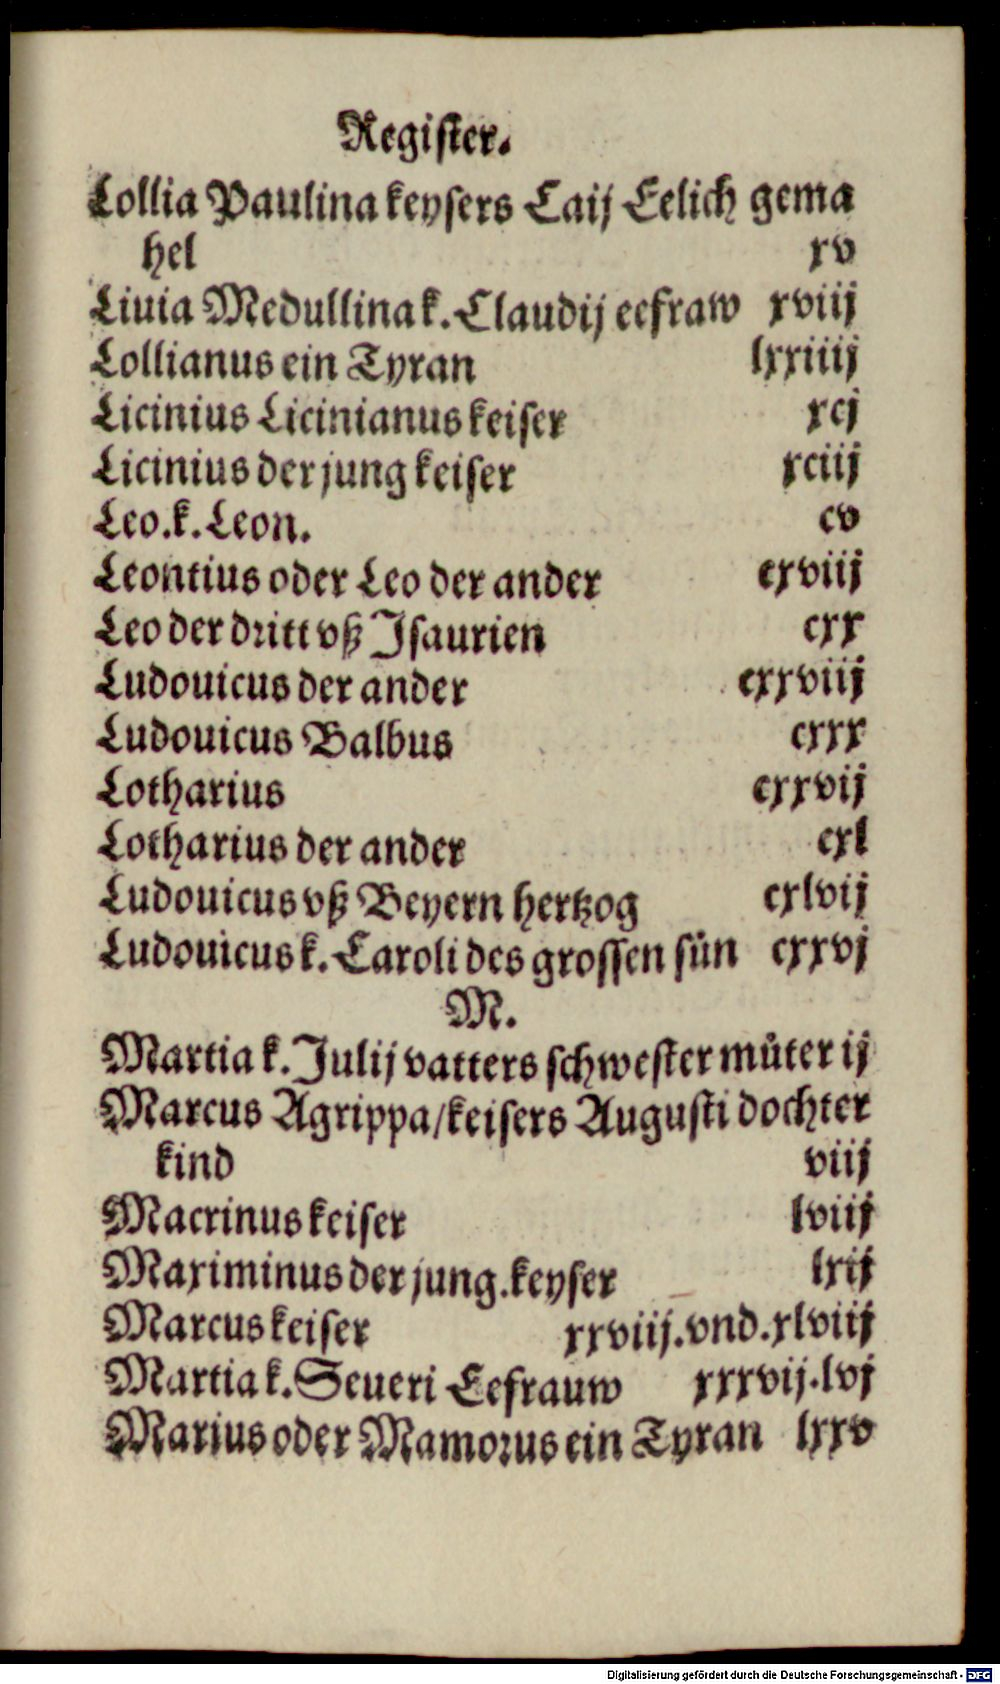 Register.
Lollia Paulina keysers Caij Eelich gema
hel xv
Liuia Medullina k. Claudij eefraw xviij
Lollianus ein Tyran lxxiiij
Licinius Licinianus keiser xcj
Licinius der jung keiser xciij
Leo. k. Leon. cv
Leontius oder Leo der ander cxviij
Leo der dritt vß Jsaurien cxx
Ludouicus der ander cxxviij
Ludouicus Balbus cxxx
Lotharius cxxvij
Lotharius der ander cxl
Ludouicus vß Beyern hertzog cxlvij
Ludouicus k. Caroli des grossen sün cxxvj
M.
Martia k. Julij vatters schwester můter ij
Marcus Agrippa/keisers Augusti dochter
kind viij
Macrinus keiser lviij
Maximinus der jung. keyser lxij
Marcus keiser xxviij. vnd. xlviij
Martia k. Seueri Eefrauw xxxvij. lvj
Marius oder Mamorus ein Tyran lxxv
Digitalisierung gefördert durch die Deutsche Forschungsgemeinschaft - DFG